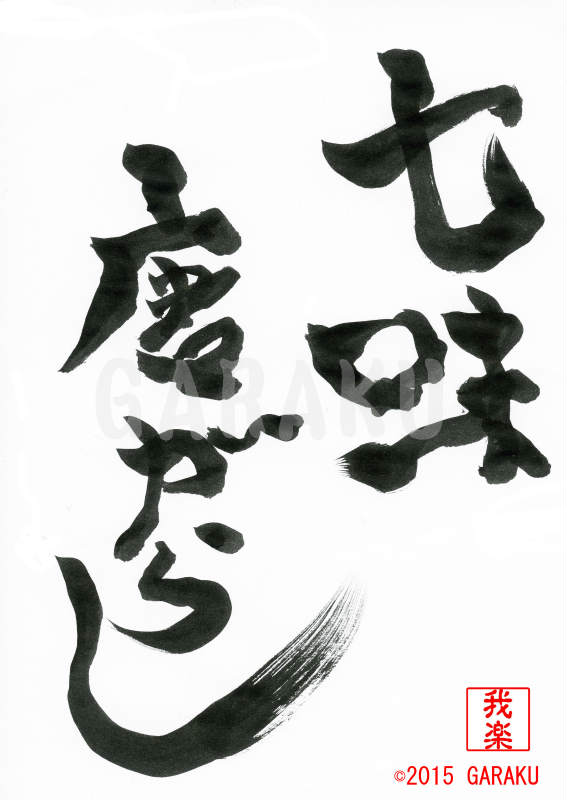 七味
唐がらし
GARAKU
我楽
©2015 GARAKU